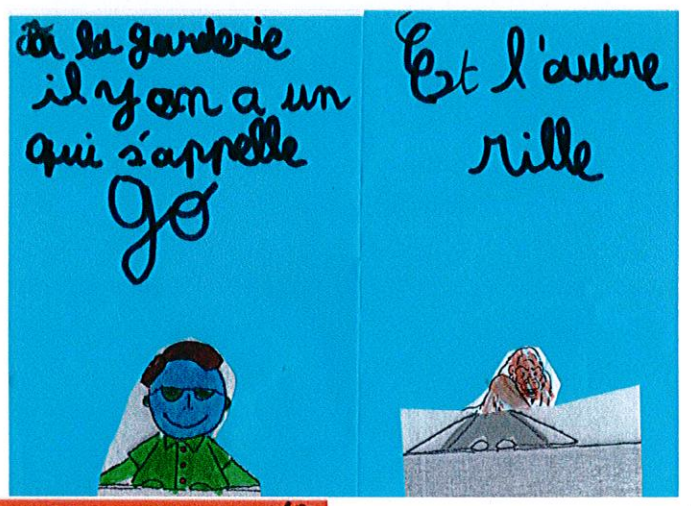 à la garderie
il y en a un
qui s'appelle
go
Et l'autre
rille